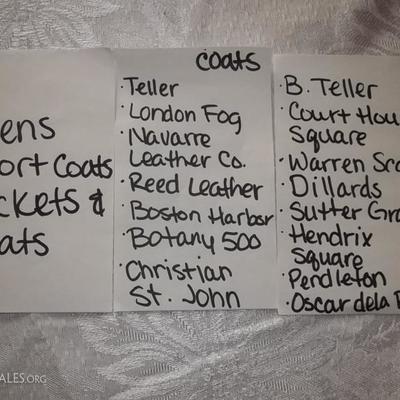 ens
ort Coats
ckets &
ats
Coats
· Teller
· London Fog
· Navarre
Leather Co.
· Reed Leather
· Boston Harbor
· Botany 500
· Christian
St. John
· B. Teller
· Court Hou
Square
· Warren Sc
· Dillards
· Sutter Gr
· Hendrix
Square
· Pendleton
· Oscar dela
ALES.ORG